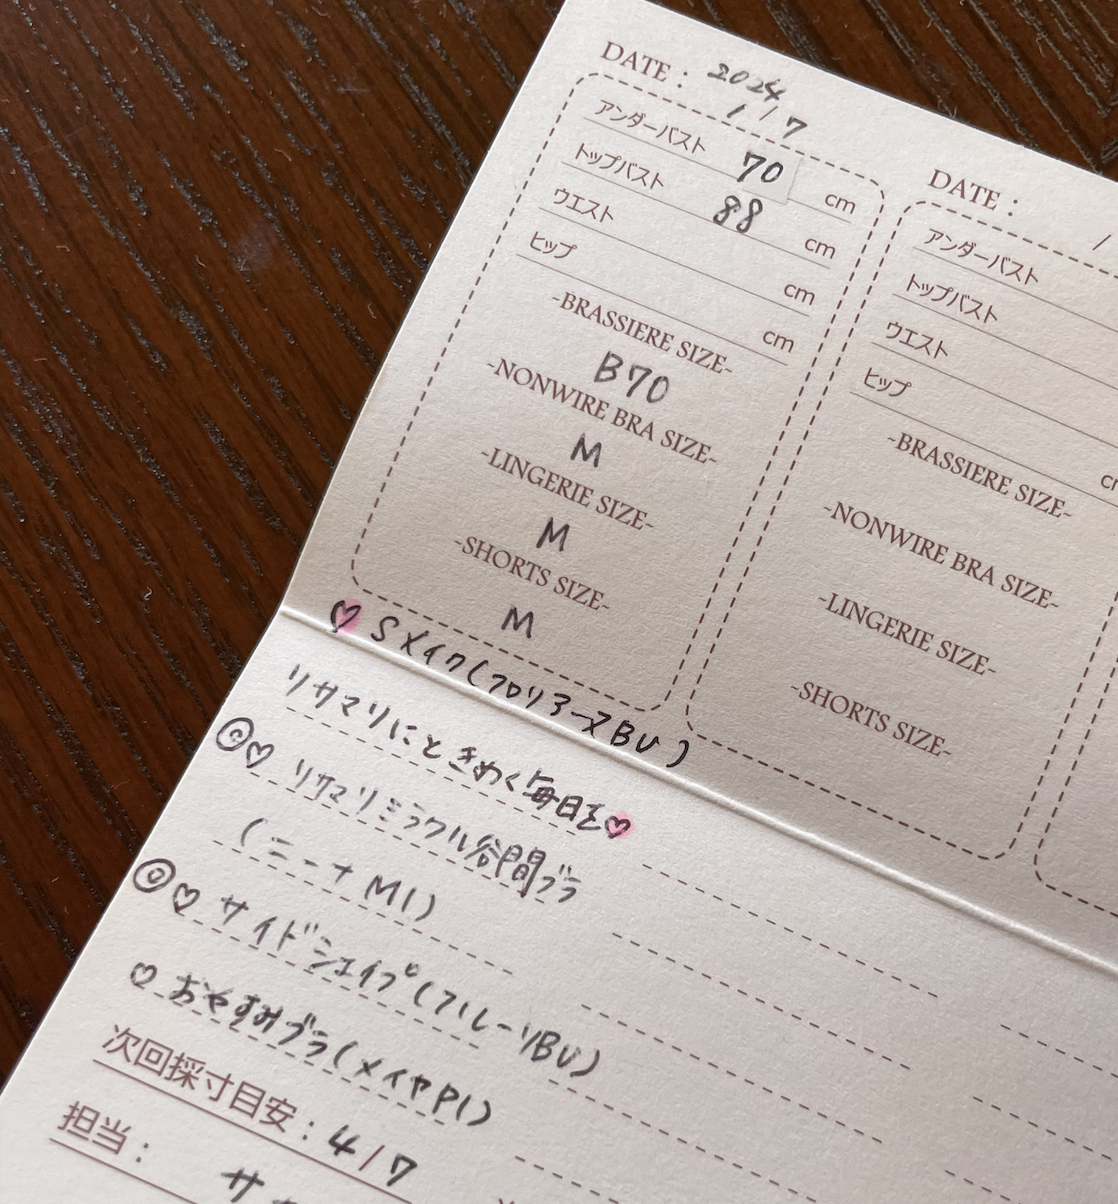 DATE : 2024 1/7
アンダーバスト 70 cm
トップバスト 88 cm
ウエスト cm
ヒップ cm
-BRASSIERE SIZE-
B70
-NONWIRE BRA SIZE-
M
-LINGERIE SIZE-
M
-SHORTS SIZE-
M
DATE : /
アンダーバスト
トップバスト
ウエスト
ヒップ
-BRASSIERE SIZE-
-NONWIRE BRA SIZE-
-LINGERIE SIZE-
-SHORTS SIZE-
♡ Sメイク(フロリアーヌBU)
リサマリにときめく毎日を♡
◎♡ リサマリミラクル谷間ブラ
(ニーナ MI)
◎♡ サイドシェイプ(フルーリBU)
♡ おやすみブラ(メイヤPI)
次回採寸目安 : 4/7
担当 :